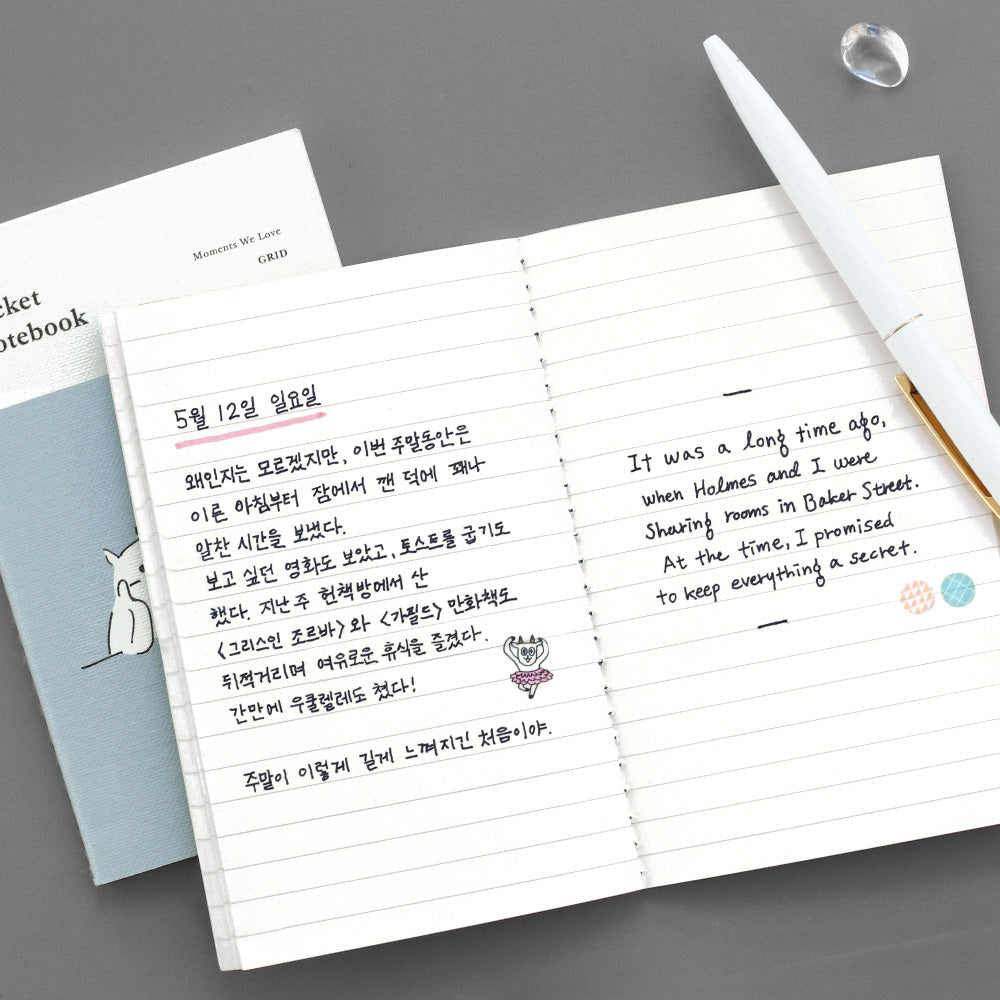 Moments We Love
GRID
cket
otebook
5월 12일 일요일
왜인지는 모르겠지만, 이번 주말동안은
이른 아침부터 잠에서 깬 덕에 꽤나
알찬 시간을 보냈다.
보고 싶던 영화도 보았고, 토스트를 굽기도
했다. 지난 주 헌책방에서 산
<그리스인 조르바> 와 <가필드> 만화책도
뒤적거리며 여유로운 휴식을 즐겼다.
간만에 우쿨렐레도 쳤다!
주말이 이렇게 길게 느껴지긴 처음이야.
It was a long time ago,
when Holmes and I were
Sharing rooms in Baker Street.
At the time, I promised
to keep everything a secret.